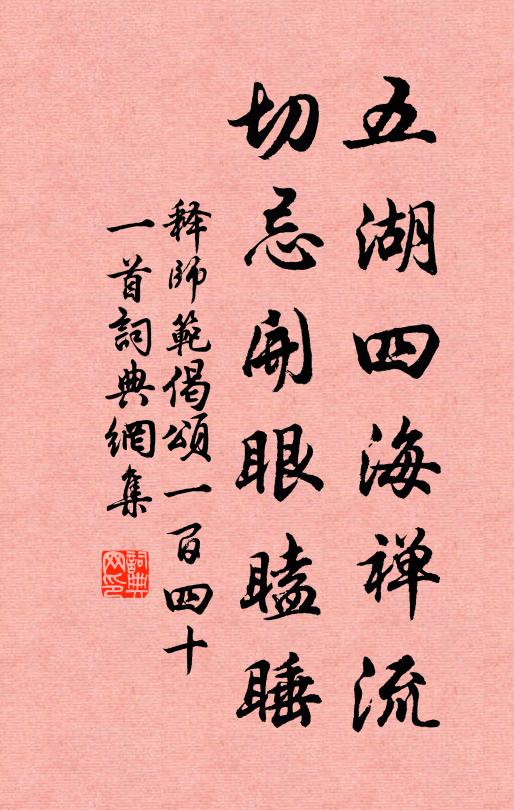 五湖四海禅流
切忌開眼瞌睡
释師範偈頌一百四十
一首詞典網集
詞典
网印